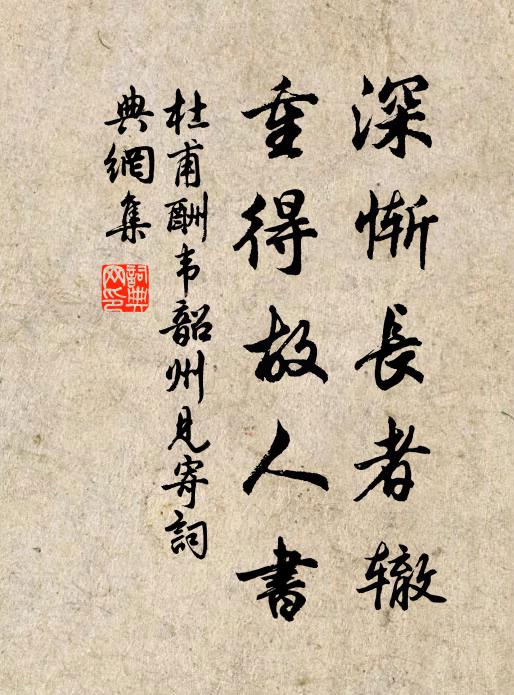 深惭長者辙
重得故人書
杜甫酬韦韶州見寄詞
典網集
詞典網印